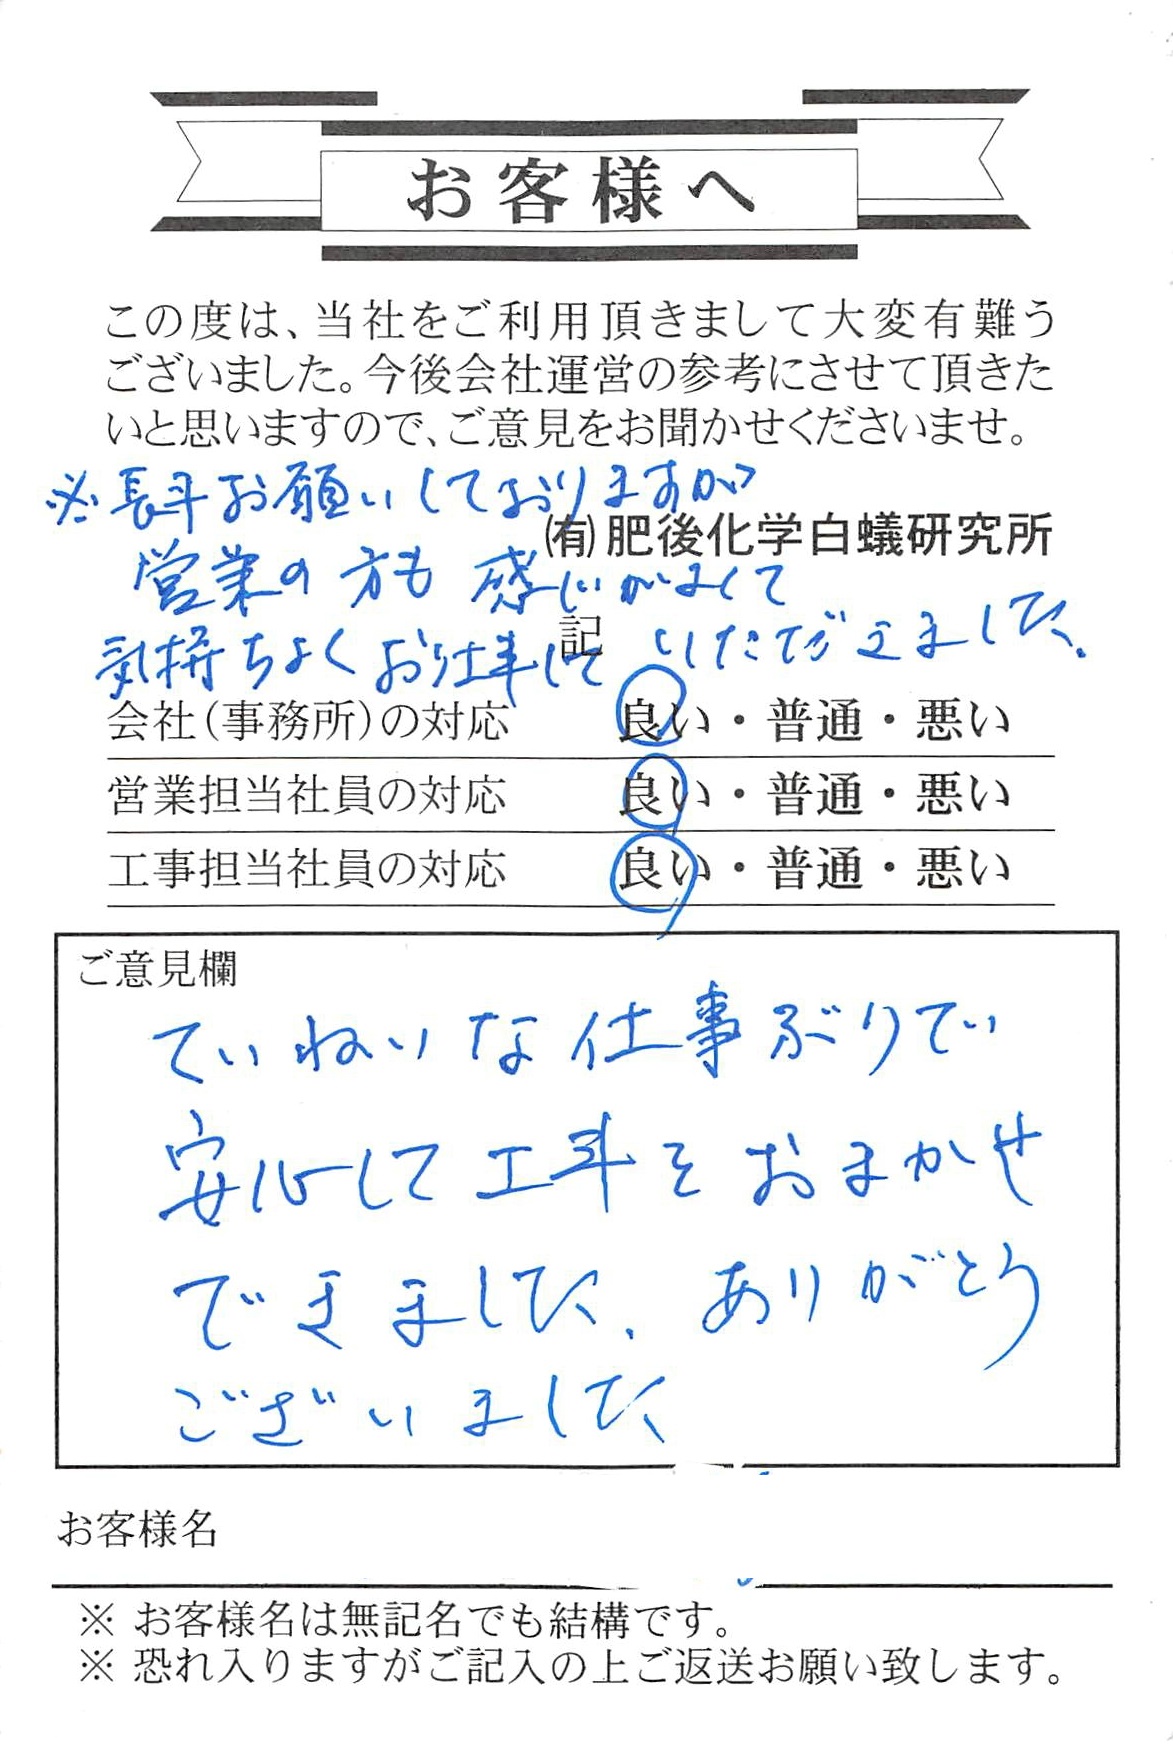 お客様へ
この度は、当社をご利用頂きまして大変有難う
ございました。今後会社運営の参考にさせて頂きた
いと思いますので、ご意見をお聞かせくださいませ。
※長年お願いしておりますが
㈲肥後化学白蟻研究所
営業の方も感じがよくて
記
気持ちよくお仕事していただきました。
会社(事務所)の対応 良い・普通・悪い
営業担当社員の対応 良い・普通・悪い
工事担当社員の対応 良い・普通・悪い
ご意見欄
ていねいな仕事ぶりで
安心して工事をおまかせ
できました。ありがとう
ございました
お客様名
※ お客様名は無記名でも結構です。
※ 恐れ入りますがご記入の上ご返送お願い致します。